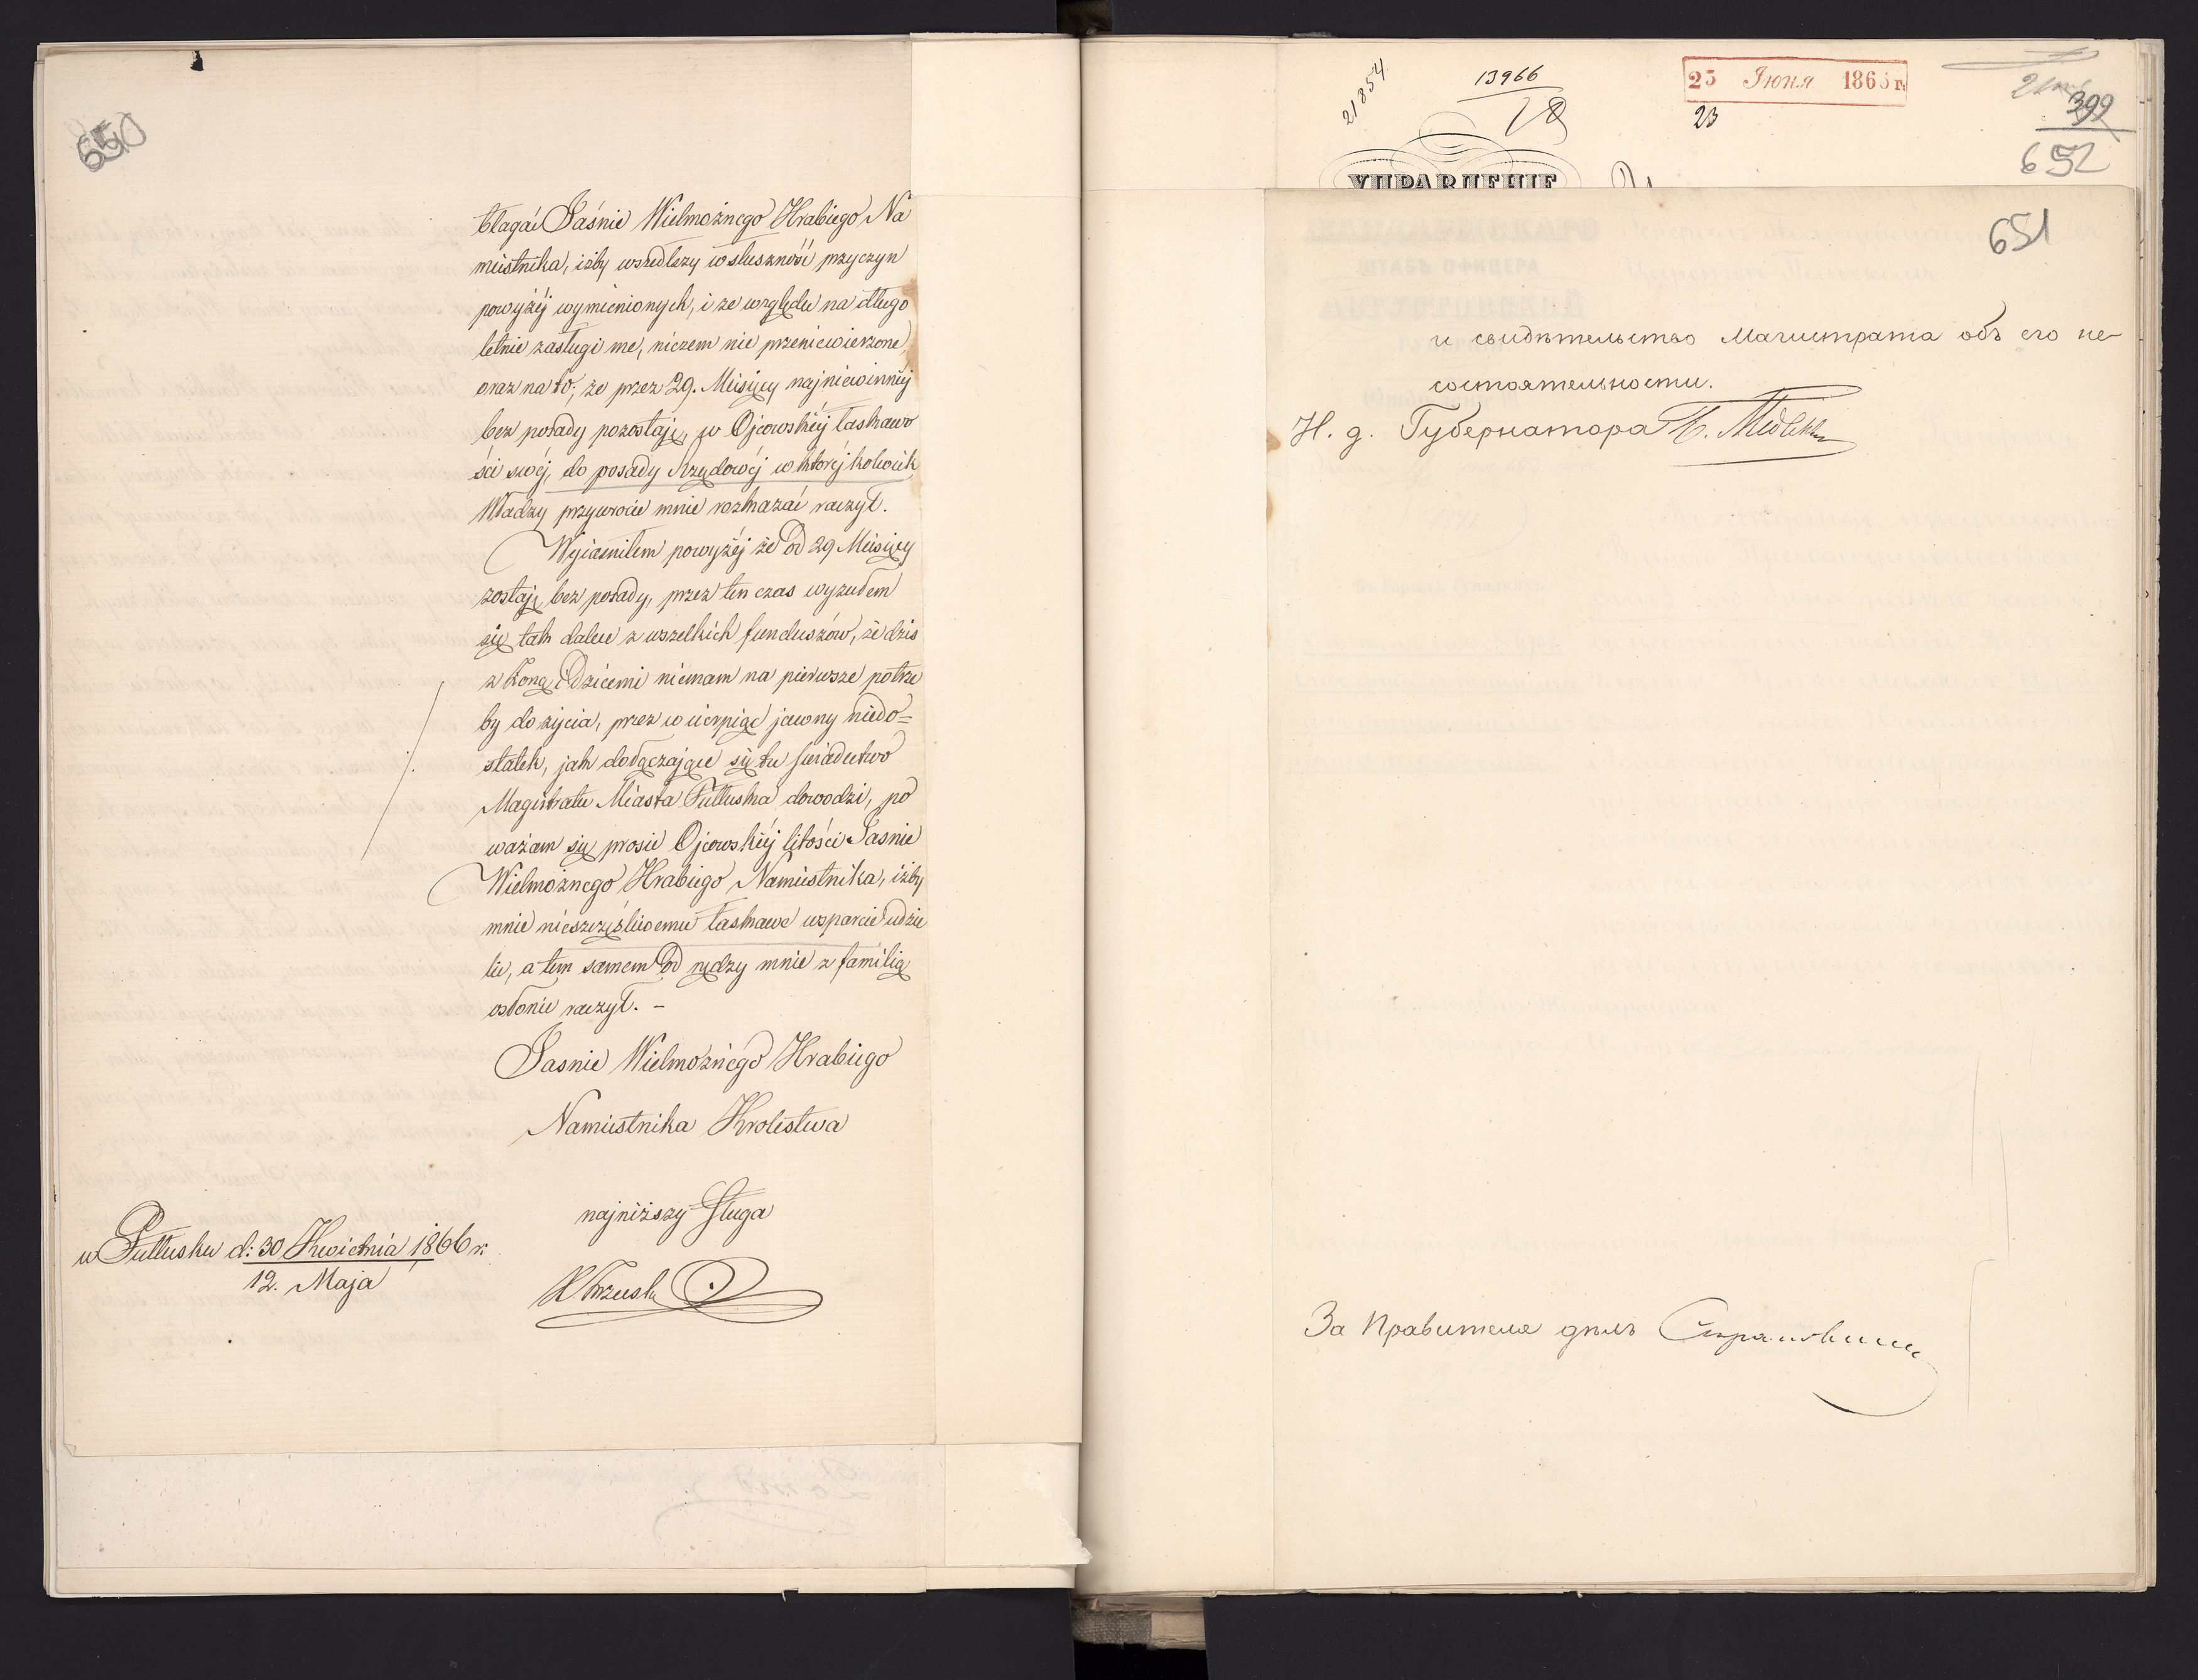 650
błagać Jaśnie Wielmożnego Hrabiego Na
miestnika, iżby wszedłszy w słuszność przyczyn
powyżéj wymienionych, i ze względu na długo
letnie zasługi me, niczem nie przeniewierzone,
oraz na to, że przez 29. Miesięcy najniewinniéj
bez posady pozostaję, w Ojcowskiéj łaskawo
ści swéj, do posady Rządowéj w któréjkolwiek
Władzy przywrócić mnie rozkazać raczył.
Wyjaśniłem powyżéj że od 29 Miesięcy
zostaję bez posady, przez ten czas wyzułem
się tak dalece z wszelkich funduszów, że dziś
z żoną i dziećmi niemam na pierwsze potrze
by do życia, przez co cierpiąc jawny niedo=
statek, jak dołączające się tu świadectwo
Magistratu Miasta Pułtuska dowodzi, po
ważam się prosić Ojcowskiéj litości Jaśnie
Wielmożnego Hrabiego Namiestnika, iżby
mnie nieszczęśliwemu łaskawe wsparcie udzie
lić, a tem samem od nędzy mnie z familią
osłonić raczył. –
Jaśnie Wielmożnego Hrabiego
Namiestnika Królestwa
najniższy Sługa
w Pułtusku d: 30 Kwietnia 1866 r.
12. Maja
21854
13966
23 Июня 1866 г.
23
399
652
УПРАВЛЕНІЕ
651
и свидѣтельство Магистрата объ его не-
состоятельности.
И. д. Губернатора
За Правителя дѣлъ